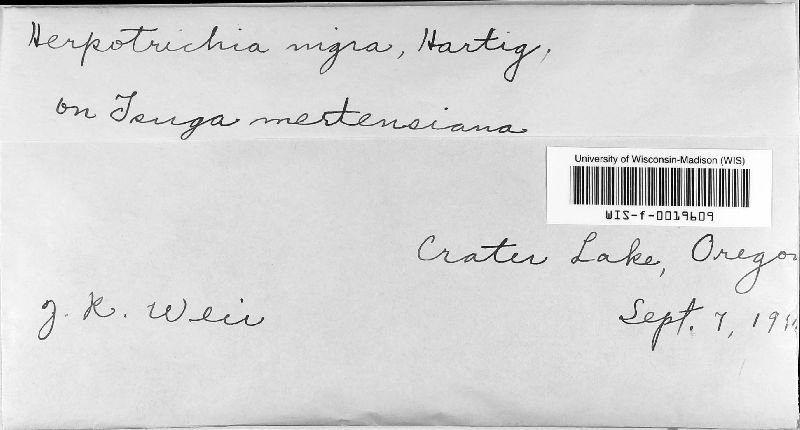 Herpotrichia nigra, Hartig,
on Tsuga mertensiana
University of Wisconsin-Madison (WIS)
WIS-f-0019609
Crater Lake, Oregon
J. R. Weir
Sept. 7,